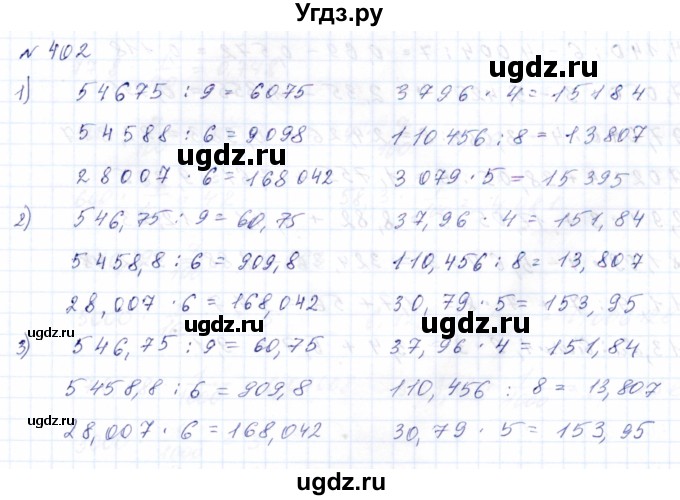 Угдз.ру
N 402
1) 54675 : 9 = 6075 3796 · 4 = 15184
54588 : 6 = 9098 110456 : 8 = 13807
28007 · 6 = 168042 3079 · 5 = 15395
2) 546,75 : 9 = 60,75 37,96 · 4 = 151,84
5458,8 : 6 = 909,8 110,456 : 8 = 13,807
28,007 · 6 = 168,042 30,79 · 5 = 153,95
3) 546,75 : 9 = 60,75 37,96 · 4 = 151,84
5458,8 : 6 = 909,8 110,456 : 8 = 13,807
28,007 · 6 = 168,042 30,79 · 5 = 153,95
ugdz.ru
ugdz.ru
ugdz.ru
ugdz.ru
ugdz.ru
ugdz.ru
ugdz.ru
ugdz.ru